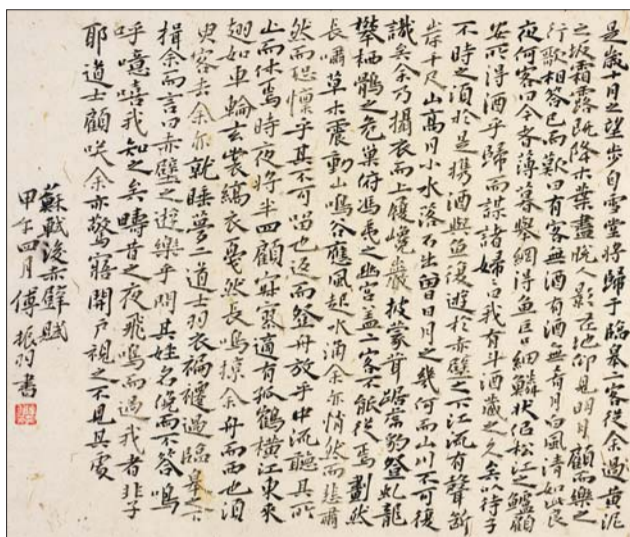 是歲十月之望步自雪堂將歸于臨皋二客從余過黄泥
之坂霜露既降木葉盡脫人影在地仰見明月顧而樂之
行歌相答已而歎曰有客無酒有酒無肴月白風清如此良
夜何客曰今者薄暮舉網得魚巨口細鱗狀似松江之鱸顧
安所得酒乎歸而謀諸婦々曰我有斗酒藏之久矣以待子
不時之須於是携酒與魚復遊於赤壁之下江流有聲斷
岸千尺山高月小水落石出曾日月之幾何而山川不可復
識矣余乃攝衣而上履巉巖披蒙茸踞虎豹登虬龍
攀栖鶻之危巢俯馮夷之幽宮蓋二客不能從焉劃然
長嘯草木震動山鳴谷應風起水涌余亦悄然而悲肅
然而恐懍乎其不可留也返而登舟放乎中流聽其所
止而休焉時夜將半四顧寂寥適有孤鶴橫江東來
翅如車輪玄裳縞衣戛然長鳴掠余舟而西也須
臾客去余亦就睡夢一道士羽衣褊褼過臨皋之下
揖余而言曰赤壁之遊樂乎問其姓名俛而不答嗚
呼噫嘻我知之矣疇昔之夜飛鳴而過我者非子
耶道士顧笑余亦驚寤開戶視之不見其處
蘇軾後赤壁賦
甲午四月 傅振羽書